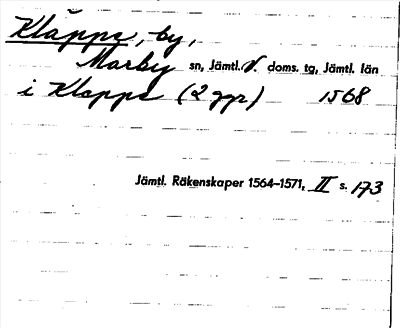 Kläppe, by,
Marby sn, Jämtl. V. doms. tg, Jämtl. län
i Kleppe (2 ggr) 1568
Jämtl. Räkenskaper 1564–1571, II s. 173